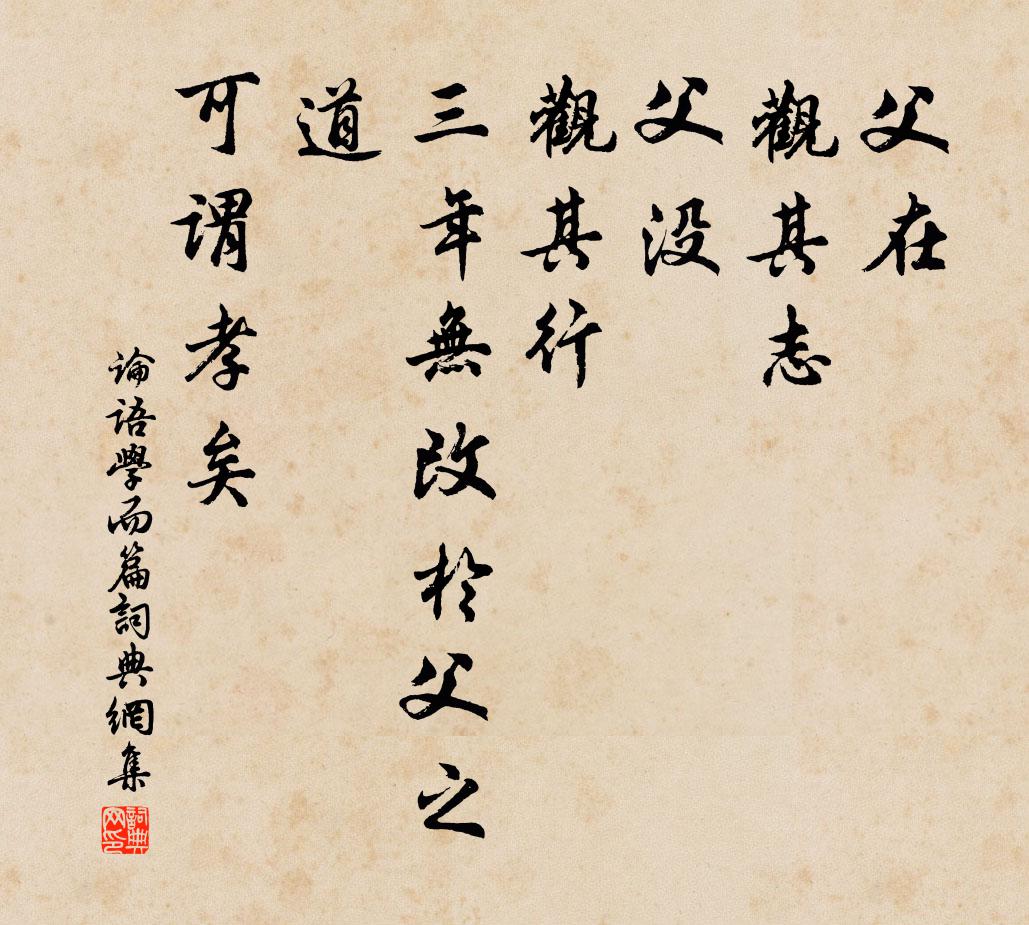 父在
觀其志
父没
觀其行
三年無改於父之
道
可谓孝矣
論語學而篇詞典網集
詞典
网印